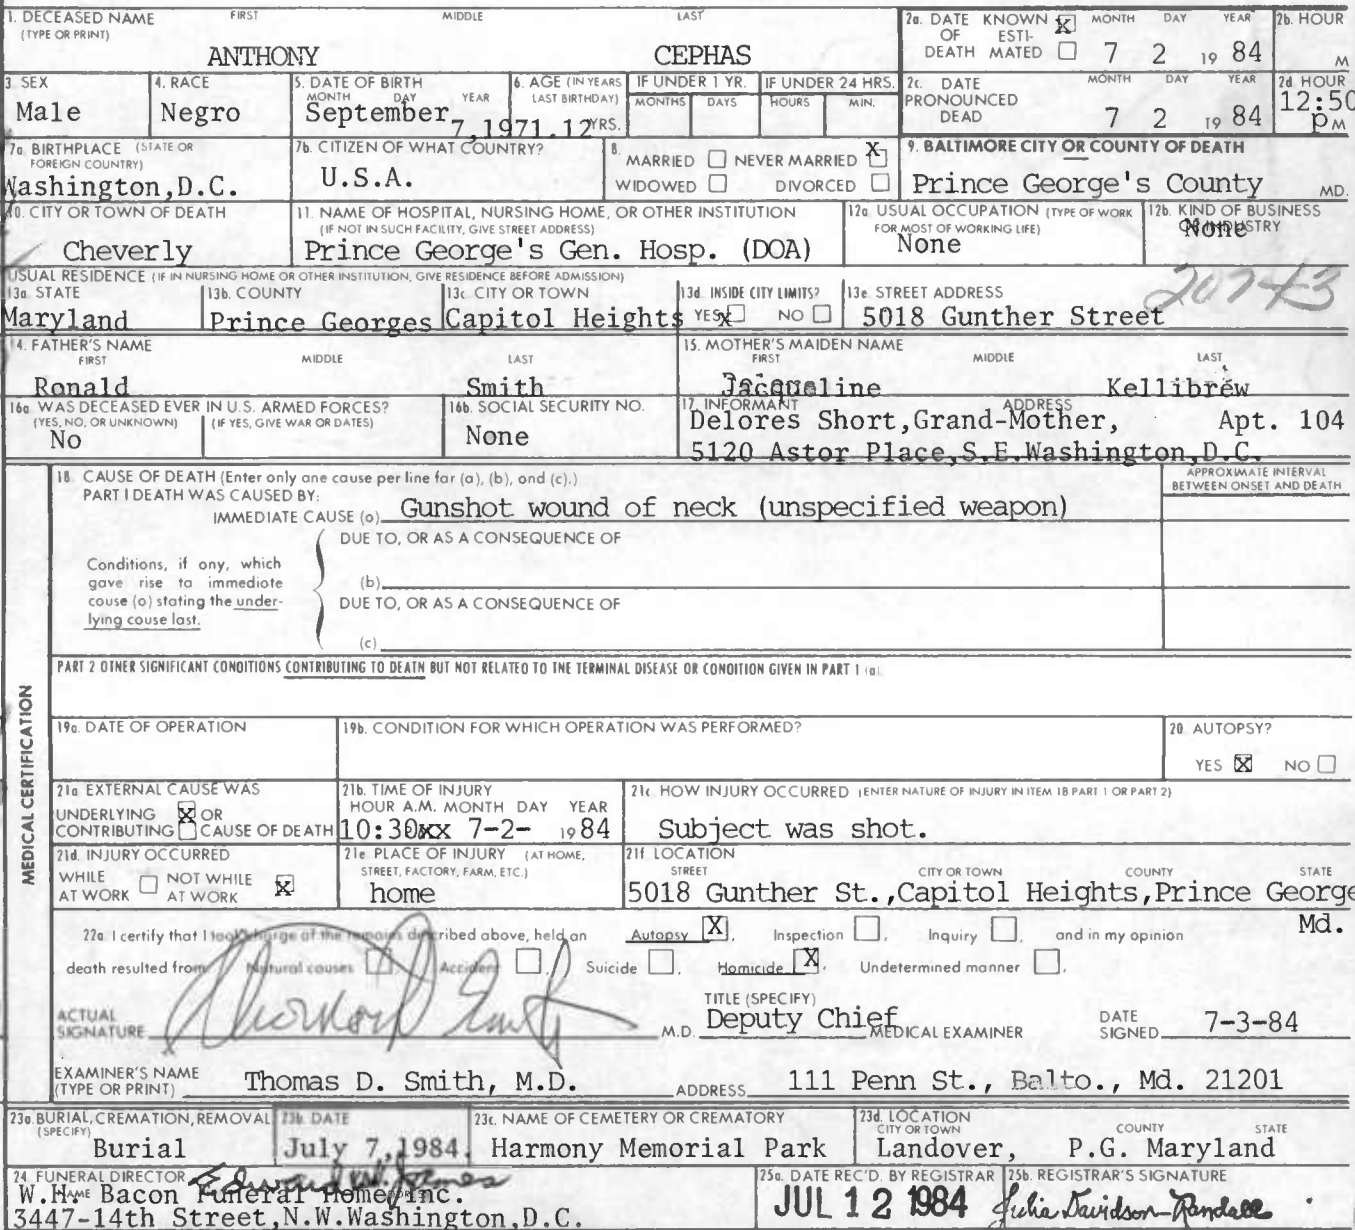 1. DECEASED NAME FIRST MIDDLE LAST
(TYPE OR PRINT)
ANTHONY CEPHAS
2a. DATE KNOWN X MONTH DAY YEAR
OF ESTI-
DEATH MATED 7 2 19 84
2b. HOUR
M
3. SEX
Male
4. RACE
Negro
5. DATE OF BIRTH
MONTH DAY YEAR
September 7,1971.
6. AGE (IN YEARS
LAST BIRTHDAY)
12 YRS.
IF UNDER 1 YR.
MONTHS DAYS
IF UNDER 24 HRS.
HOURS MIN.
2c. DATE MONTH DAY YEAR
PRONOUNCED
DEAD 7 2 19 84
2d. HOUR
12:50
P M
7a. BIRTHPLACE (STATE OR
FOREIGN COUNTRY)
Washington,D.C.
7b. CITIZEN OF WHAT COUNTRY?
U.S.A.
8.
MARRIED NEVER MARRIED X
WIDOWED DIVORCED
9. BALTIMORE CITY OR COUNTY OF DEATH
Prince George's County MD.
10. CITY OR TOWN OF DEATH
Cheverly
11. NAME OF HOSPITAL, NURSING HOME, OR OTHER INSTITUTION
(IF NOT IN SUCH FACILITY, GIVE STREET ADDRESS)
Prince George's Gen. Hosp. (DOA)
12a. USUAL OCCUPATION (TYPE OF WORK
FOR MOST OF WORKING LIFE)
None
12b. KIND OF BUSINESS
OR INDUSTRY
None
USUAL RESIDENCE (IF IN NURSING HOME OR OTHER INSTITUTION, GIVE RESIDENCE BEFORE ADMISSION)
13a. STATE
Maryland
13b. COUNTY
Prince Georges
13c. CITY OR TOWN
Capitol Heights
13d. INSIDE CITY LIMITS?
YES x NO
13e. STREET ADDRESS
5018 Gunther Street
20743
14. FATHER'S NAME
FIRST MIDDLE LAST
Ronald Smith
15. MOTHER'S MAIDEN NAME
FIRST MIDDLE LAST
Jacqueline Kellibrew
16a. WAS DECEASED EVER IN U.S. ARMED FORCES?
(YES, NO, OR UNKNOWN) (IF YES, GIVE WAR OR DATES)
No
16b. SOCIAL SECURITY NO.
None
17. INFORMANT ADDRESS
Delores Short,Grand-Mother, Apt. 104
5120 Astor Place,S.E.Washington,D.C.
MEDICAL CERTIFICATION
18. CAUSE OF DEATH (Enter only one cause per line for (a), (b), and (c).)
PART I DEATH WAS CAUSED BY:
IMMEDIATE CAUSE (a) Gunshot wound of neck (unspecified weapon)
APPROXIMATE INTERVAL
BETWEEN ONSET AND DEATH
DUE TO, OR AS A CONSEQUENCE OF
Conditions, if any, which
gave rise to immediate
cause (a) stating the under-
lying cause last.
(b)
DUE TO, OR AS A CONSEQUENCE OF
(c)
PART 2 OTHER SIGNIFICANT CONDITIONS CONTRIBUTING TO DEATH BUT NOT RELATED TO THE TERMINAL DISEASE OR CONDITION GIVEN IN PART 1 (a)
19a. DATE OF OPERATION
19b. CONDITION FOR WHICH OPERATION WAS PERFORMED?
20. AUTOPSY?
YES X NO
21a. EXTERNAL CAUSE WAS
UNDERLYING X OR
CONTRIBUTING CAUSE OF DEATH
21b. TIME OF INJURY
HOUR A.M. MONTH DAY YEAR
10:30xx 7-2- 19 84
21c. HOW INJURY OCCURRED (ENTER NATURE OF INJURY IN ITEM 18 PART 1 OR PART 2)
Subject was shot.
21d. INJURY OCCURRED
WHILE NOT WHILE
AT WORK AT WORK X
21e. PLACE OF INJURY (AT HOME,
STREET, FACTORY, FARM, ETC.)
home
21f. LOCATION
STREET CITY OR TOWN COUNTY STATE
5018 Gunther St.,Capitol Heights,Prince George
Md.
22a. I certify that I took charge of the remains described above, held an Autopsy X, Inspection , Inquiry , and in my opinion
death resulted from Natural causes , Accident , Suicide , Homicide X, Undetermined manner ,
ACTUAL
SIGNATURE M.D.
TITLE (SPECIFY)
Deputy Chief MEDICAL EXAMINER
DATE
SIGNED 7-3-84
EXAMINER'S NAME
(TYPE OR PRINT) Thomas D. Smith, M.D. ADDRESS 111 Penn St., Balto., Md. 21201
23a. BURIAL, CREMATION, REMOVAL
(SPECIFY)
Burial
23b. DATE
July 7,1984
23c. NAME OF CEMETERY OR CREMATORY
Harmony Memorial Park
23d. LOCATION
CITY OR TOWN COUNTY STATE
Landover, P.G. Maryland
24. FUNERAL DIRECTOR
NAME
W.H. Bacon Funeral Home,Inc.
3447-14th Street,N.W.Washington,D.C.
25a. DATE REC'D. BY REGISTRAR
JUL 12 1984
25b. REGISTRAR'S SIGNATURE
Julia Davidson-Randall